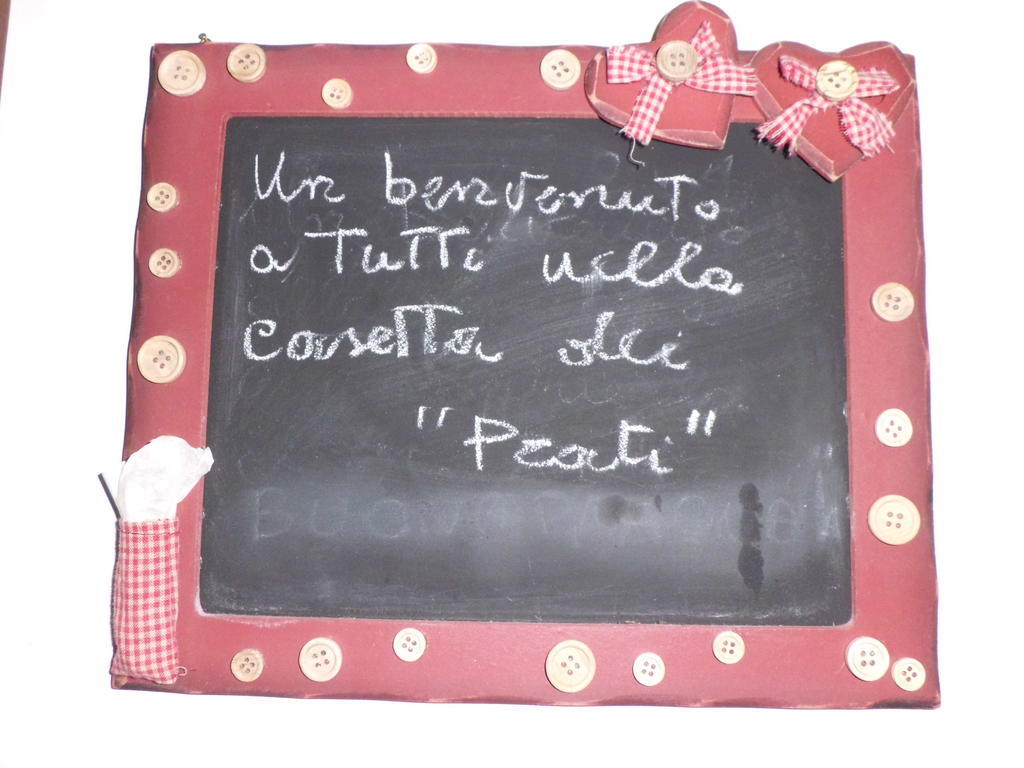 Un benvenuto
a Tutti nella
casetta dei
"Prati"